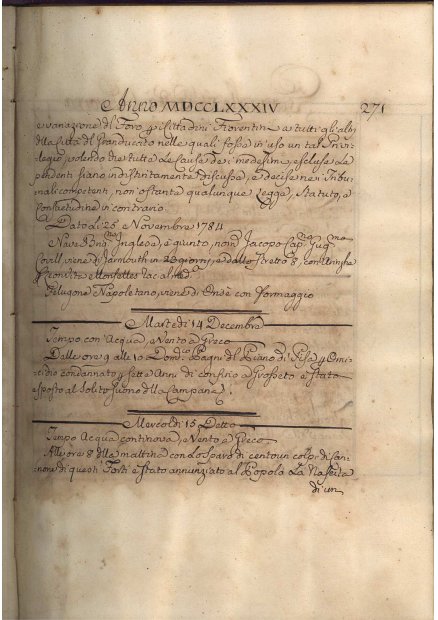 Anno MDCCLXXXIV 271
evanazione del Foro, p i Cittadini Fiorentini e a tutti gli altri
della Città del Granducato nelle quali fosse in uso un tal Privi-
legio, volendo che tutte Le Cause de' medesimi, escluse Le
pendenti siano indistintamente discusse, e decise nei Tribu-
nali competenti, non ostante qualunque Legge, Statuto, e
Consuetudine in contrario.
Dato al dì 23 Novembre 1784
Nave Inglese, è giunto, nom Jacopo Cap Gug.mo
viene di Jarmouth in 23 giorni, e dallo Stretto 8, con Aringhe
Filugone Napoletano, viene di con formaggio
Martedì 14 Decembre
Tempo con Acqua, e Vento a Greco
Dalle ore 9 alle 10 Bagni del Piano di Pisa p Omi-
cidio condannato p sette Anni di confino a Grosseto è stato
esposto al Solito Suono della Campana
Mercoldì 15 Detto
Tempo Acqua continova, e Vento a Greco
Alle ore 8 della mattina con Lo Sparo di cento un colpi di Can-
none di questi Forti è stato annunziato al Popolo La Nascita
di un